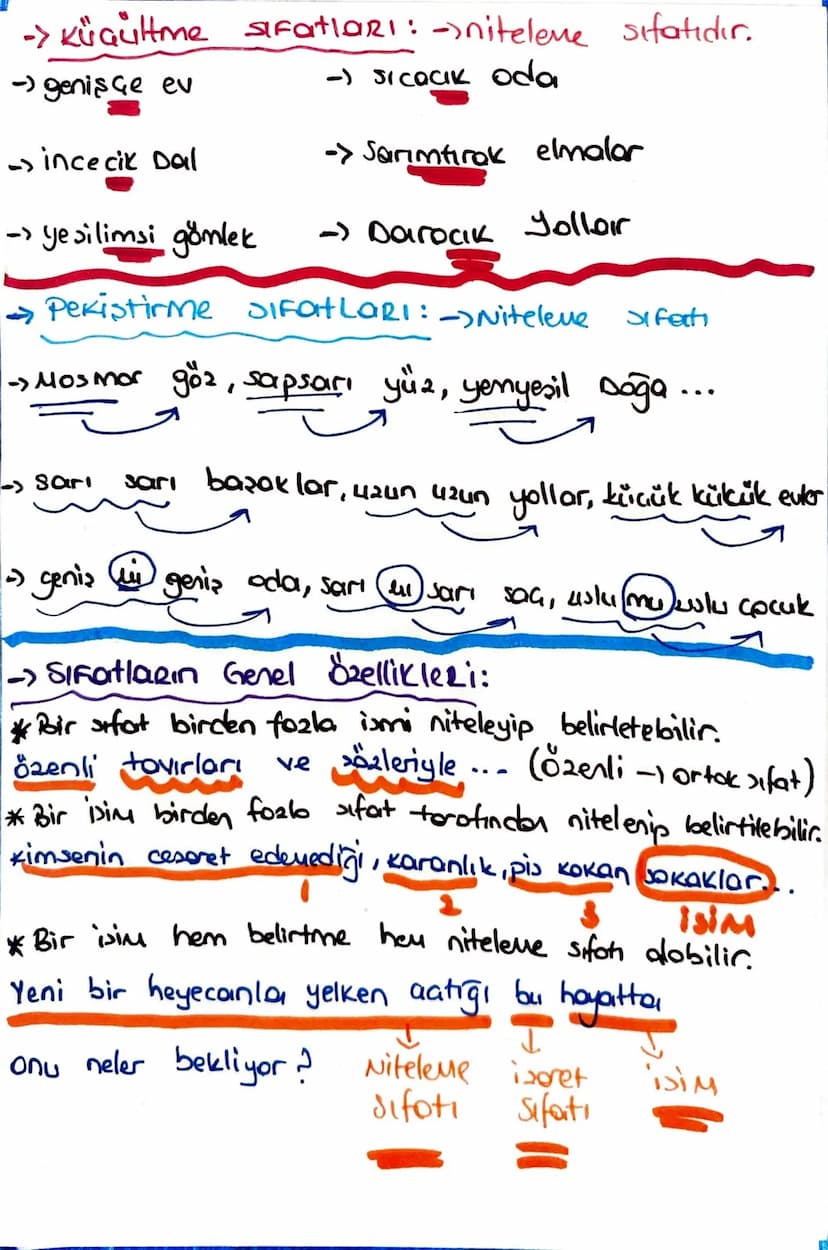 -> Küçültme sıfatları: -> niteleme sıfatıdır.
-> genişçe ev -> sıcacık oda
-> incecik Dal -> sarımtırak elmalar
-> yeşilimsi gömlek -> Daracık Yollar
-> Pekiştirme sıfatları: -> Niteleme sıfatı
-> Mosmor göz, sapsarı yüz, yemyeşil Doğa ...
-> sarı sarı başaklar, uzun uzun yollar, küçük küçük evler
-> geniş mi geniş oda, sarı mı sarı saç, uslu mu uslu çocuk
-> Sıfatların Genel Özellikleri:
* Bir sıfat birden fazla ismi niteleyip belirletebilir.
özenli tavırları ve sözleriyle ... (Özenli -> ortak sıfat)
* Bir isim birden fazla sıfat tarafından nitelenip belirtilebilir.
Kimsenin cesaret edemediği, karanlık, pis kokan sokaklar...
1 2 3 isim
* Bir isim hem belirtme hem niteleme sıfatı alabilir.
Yeni bir heyecanla yelken açtığı bu hayatta
onu neler bekliyor? Niteleme işaret isim
sıfatı sıfatı